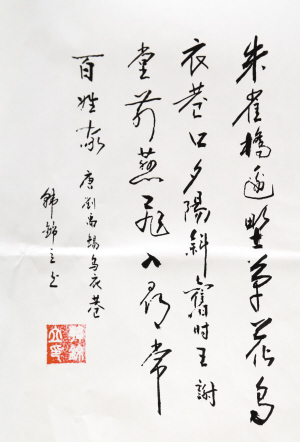 朱雀橋邊野草花烏
衣巷口夕陽斜舊时王謝
堂前燕飛入尋常
百姓家
唐劉禹錫烏衣巷
韩錦立书